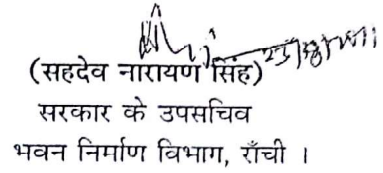 (सहदेव नारायण सिंह)
सरकार के उपसचिव
भवन निर्माण विभाग, राँची ।